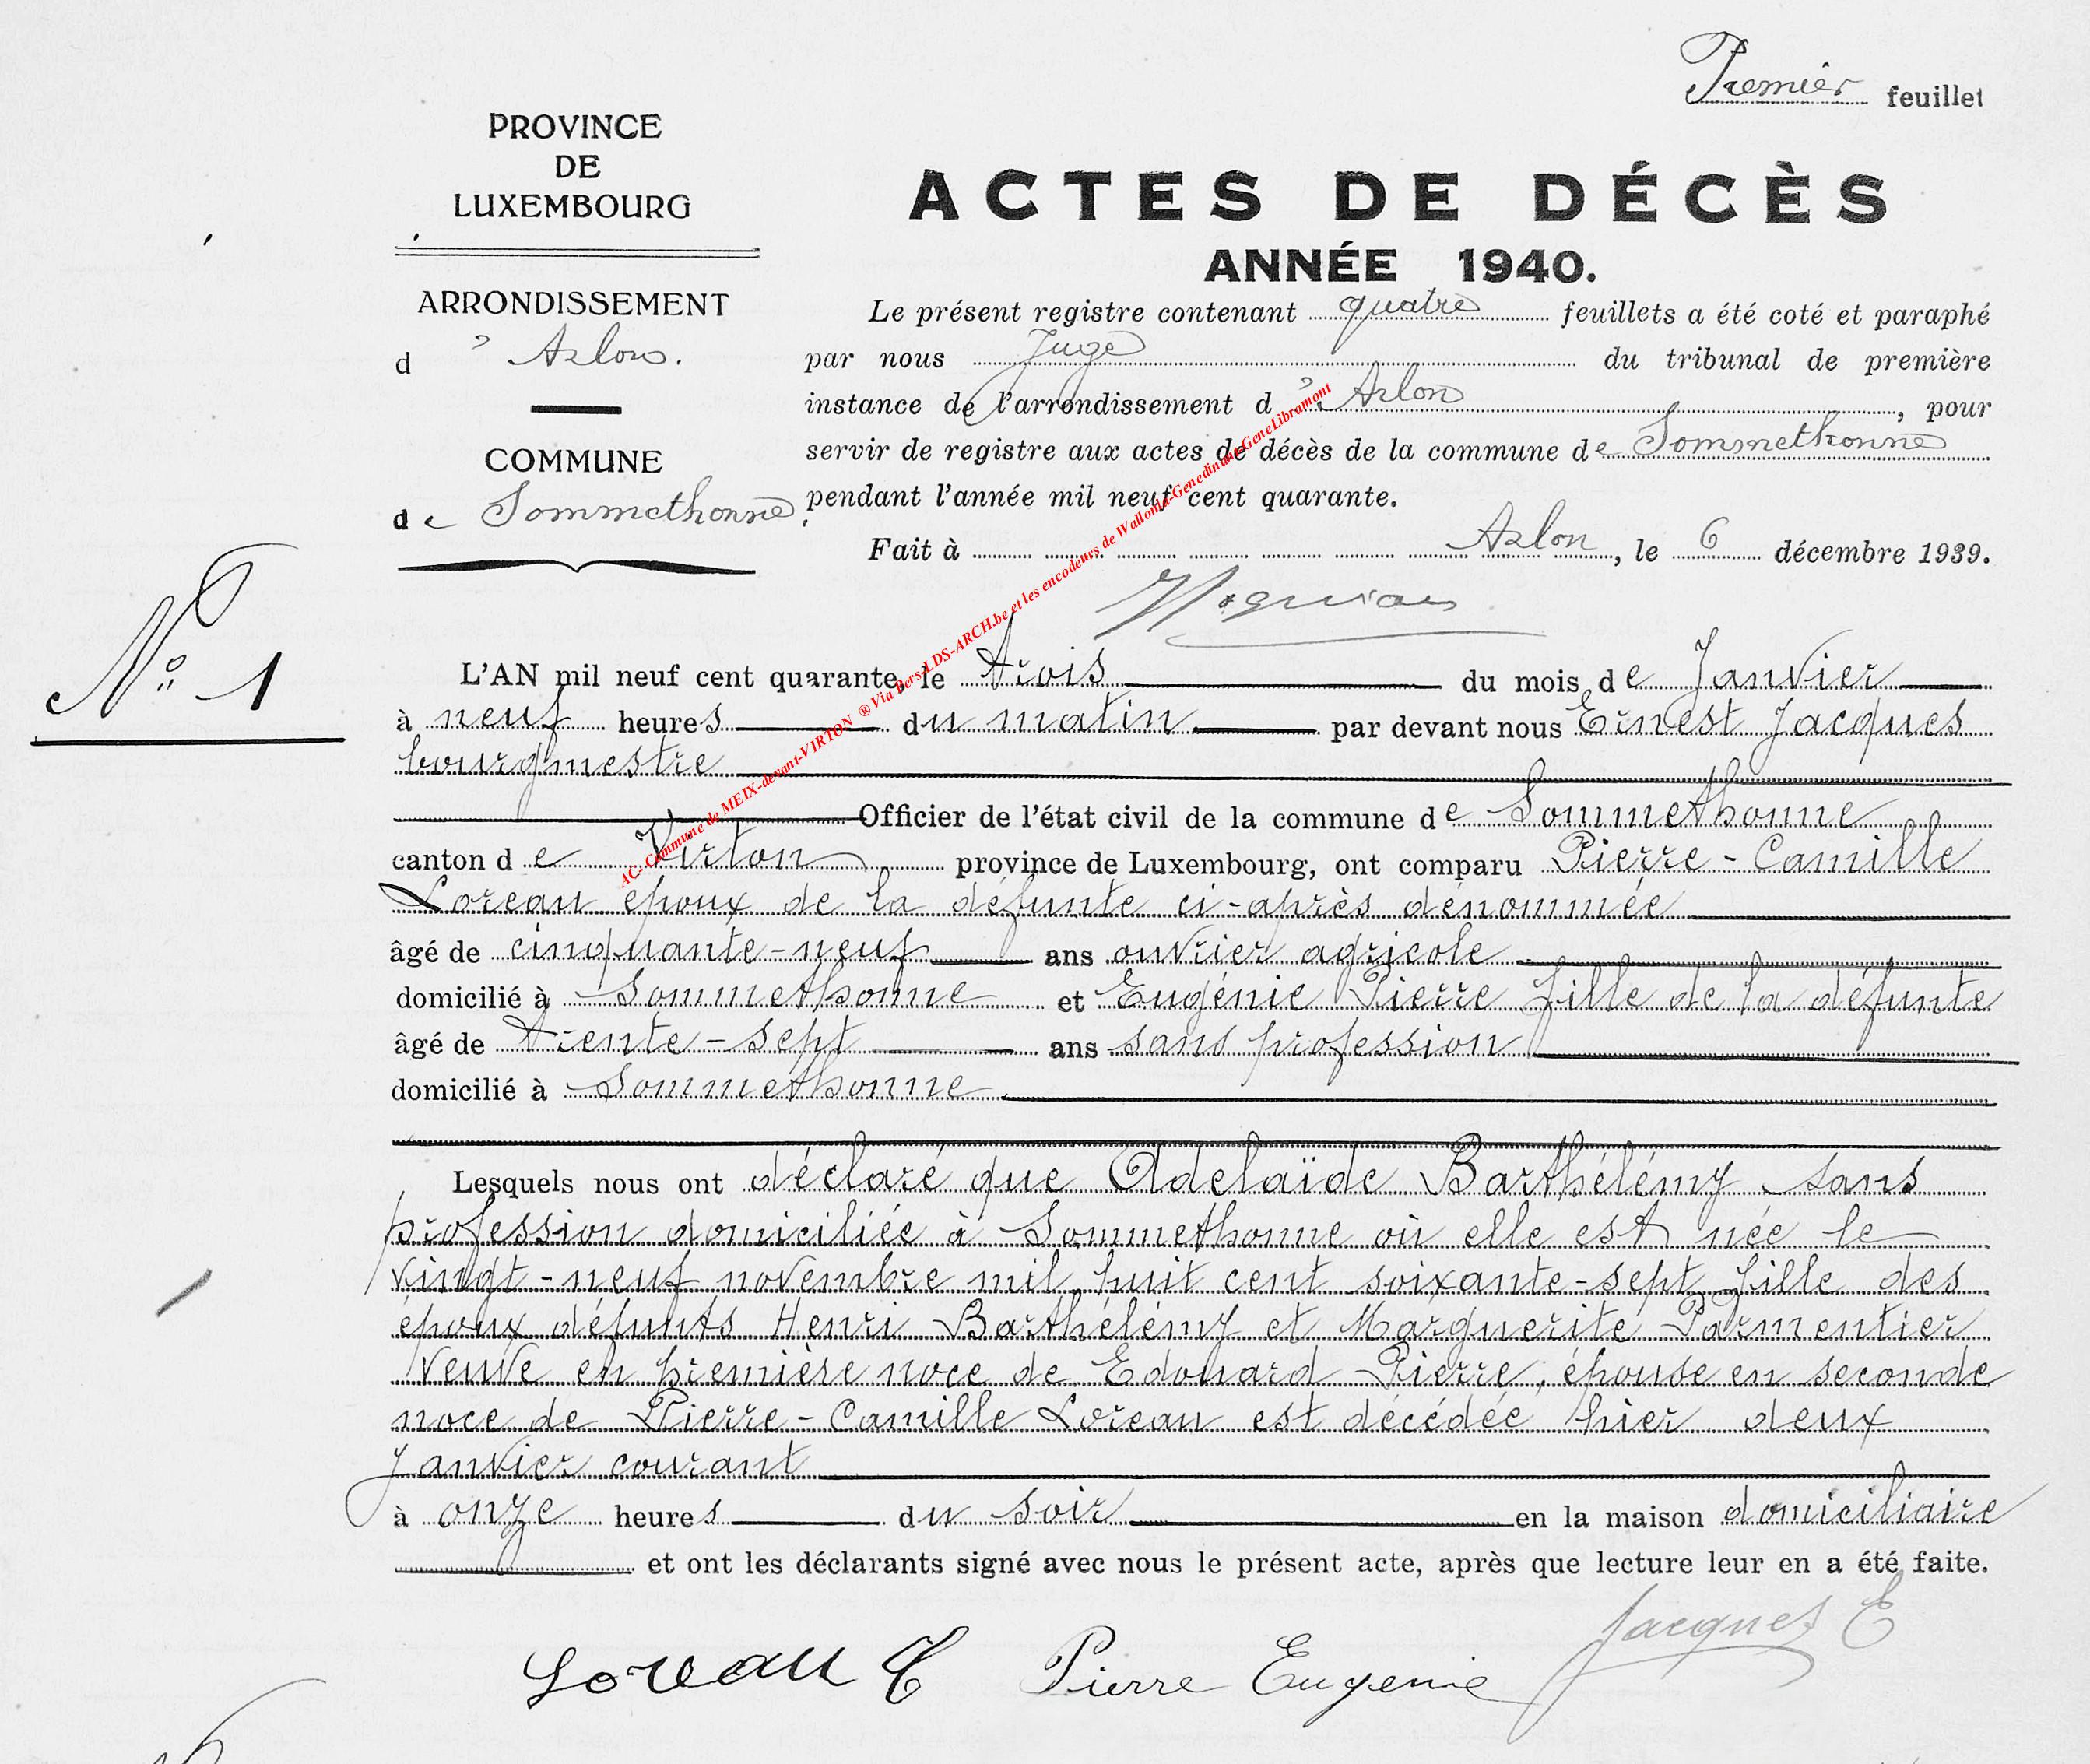 Premier feuillet
PROVINCE
DE
LUXEMBOURG
ARRONDISSEMENT
d'Arlon.
COMMUNE
de Sommethonne.
ACTES DE DÉCÈS
ANNÉE 1940.
Le présent registre contenant quatre feuillets a été coté et paraphé
par nous Juge du tribunal de première
instance de l'arrondissement d'Arlon, pour
servir de registre aux actes de décès de la commune de Sommethonne
pendant l'année mil neuf cent quarante.
Fait à Arlon, le 6 décembre 1939.
N° 1
L'AN mil neuf cent quarante, le trois du mois de Janvier
à neuf heures du matin par devant nous Ernest Jacques
bourgmestre
Officier de l'état civil de la commune de Sommethonne
canton de Virton province de Luxembourg, ont comparu Pierre-Camille
Loreau époux de la défunte ci-après dénommée
âgé de cinquante-neuf ans ouvrier agricole
domicilié à Sommethonne et Eugénie Pierre fille de la défunte
âgé de trente-sept ans sans profession
domicilié à Sommethonne
Lesquels nous ont déclaré que Adelaïde Barthélémy sans
profession domiciliée à Sommethonne où elle est née le
vingt-neuf novembre mil huit cent soixante-sept fille des
époux défunts Henri Barthélémy et Marguerite Parmentier
veuve en première noce de Edouard Pierre, épouse en seconde
noce de Pierre-Camille Loreau est décédée hier deux
Janvier courant
à onze heures du soir en la maison domiciliaire
et ont les déclarants signé avec nous le présent acte, après que lecture leur en a été faite.
Jacques E
Loreau C Pierre Eugenie
AC-Commune de MEIX-devant-VIRTON ® Via Bers-LDS-ARCH.be et les encodeurs de Wallonia-Genedinant-GeneLibramont